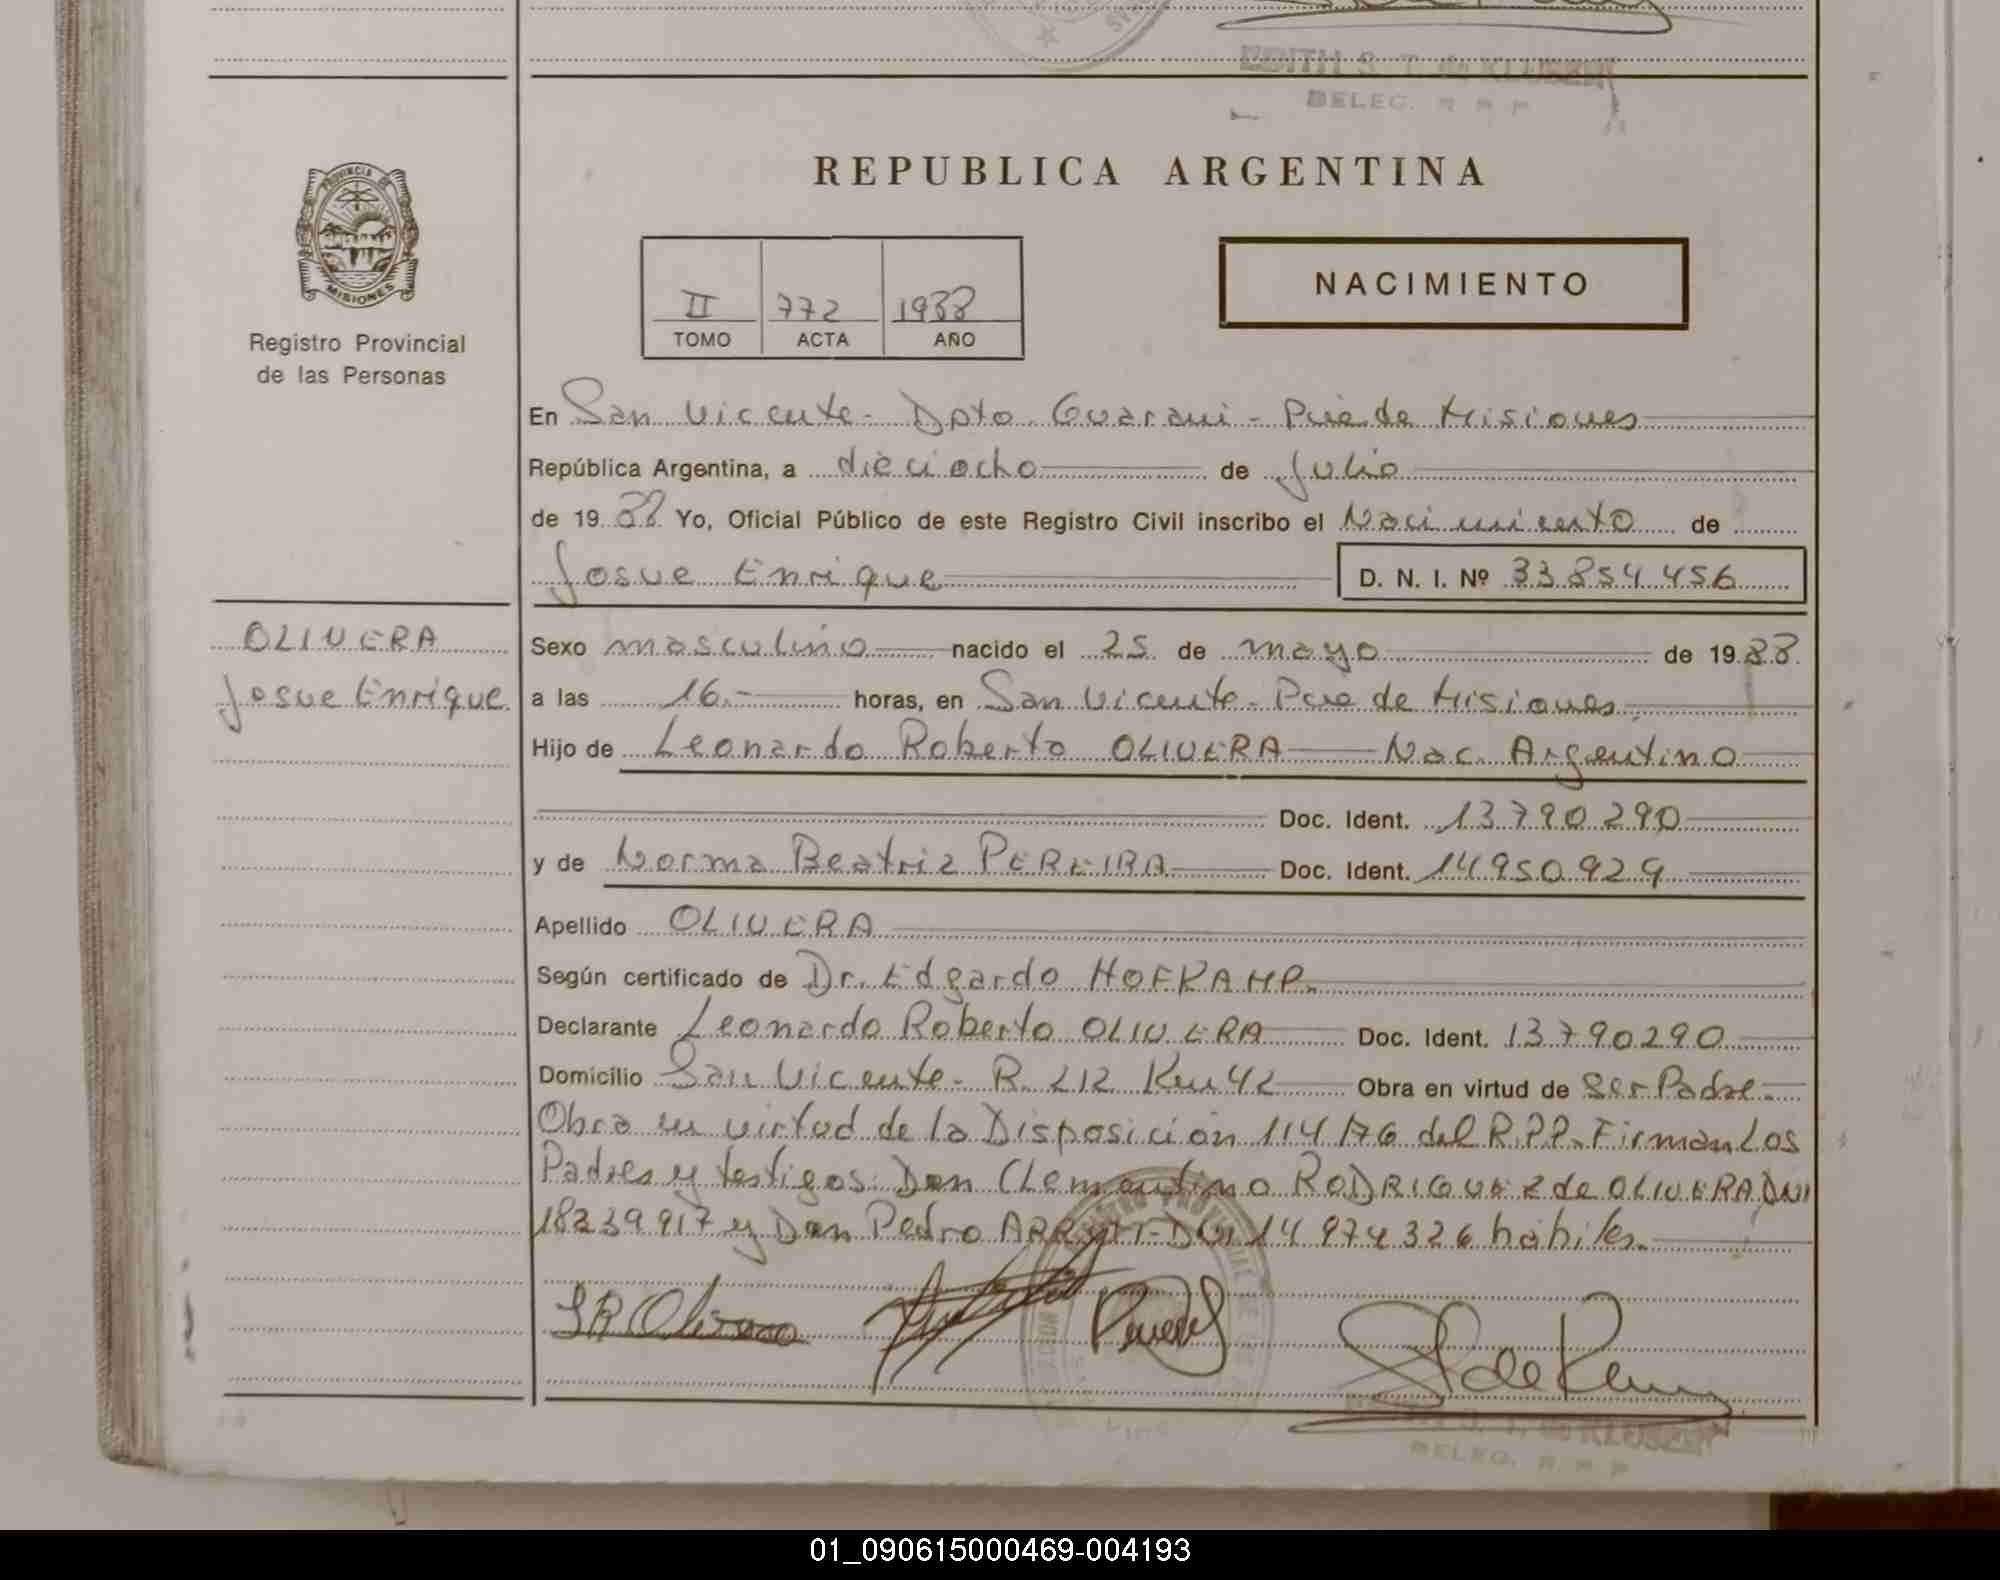 EDITH S. T. de KLUSENER
DELEG. R P P
REPUBLICA ARGENTINA
PROVINCIA DE
MISIONES
Registro Provincial
de las Personas
II 772 1988
TOMO ACTA AÑO
NACIMIENTO
En San Vicente- Dpto. Guarani - Pcia de Misiones
República Argentina, a dieciocho de Julio
de 1988 Yo, Oficial Público de este Registro Civil inscribo el Nacimiento de
Josue Enrique D. N. I. Nº 33 854 456
OLIVERA
Josue Enrique
Sexo masculino nacido el 25 de mayo de 1988
a las 16.- horas, en San Vicente- Pcia de Misiones
Hijo de Leonardo Roberto OLIVERA Nac. Argentino
Doc. Ident. 13790290
y de Norma Beatriz PEREIRA Doc. Ident. 14950929
Apellido OLIVERA
Según certificado de Dr. Edgardo HOFKAMP.
Declarante Leonardo Roberto OLIVERA Doc. Ident. 13790290
Domicilio San Vicente- R. 212 Km 42 Obra en virtud de Ser Padre.
Obra en virtud de la Disposición 114/76 del R.P.P. Firman Los
Padres y testigos: Don Clementino RODRIGUEZ de OLIVERA DNI
18239917 y Don Pedro 14 974 326 hábiles.
LR Olivera
de KLUSENER
DELEG. R P P
01_090615000469-004193